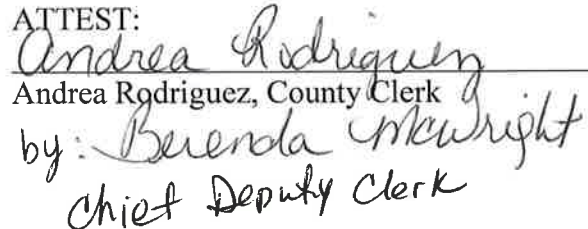 ATTEST:
Andrea Rodriguez
Andrea Rodriguez, County Clerk
by: Berenda McWright
Chief Deputy Clerk